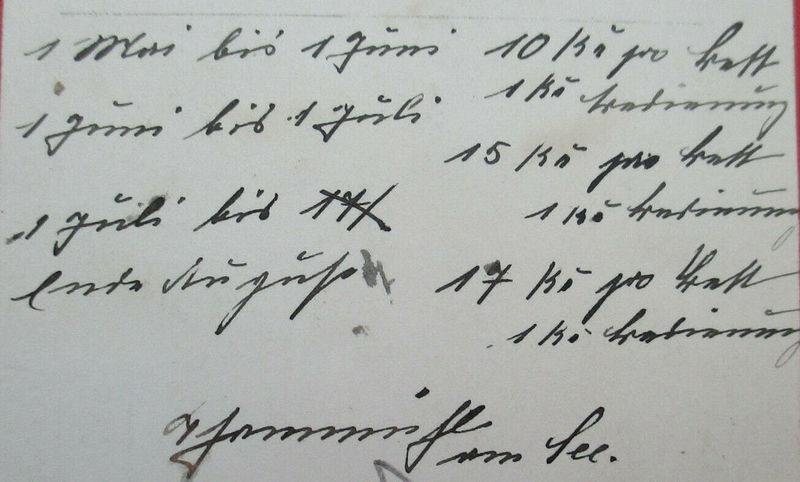 1 Mai bis 1 Juni 10 Kč pro Bett
1 Kč Bedienung
1 Juni bis 1 Juli
15 Kč pro Bett
1 Juli bis 17/
1 Kč Bedienung
Ende August
17 Kč pro Bett
1 Kč Bedienung
Thammühl
am See.